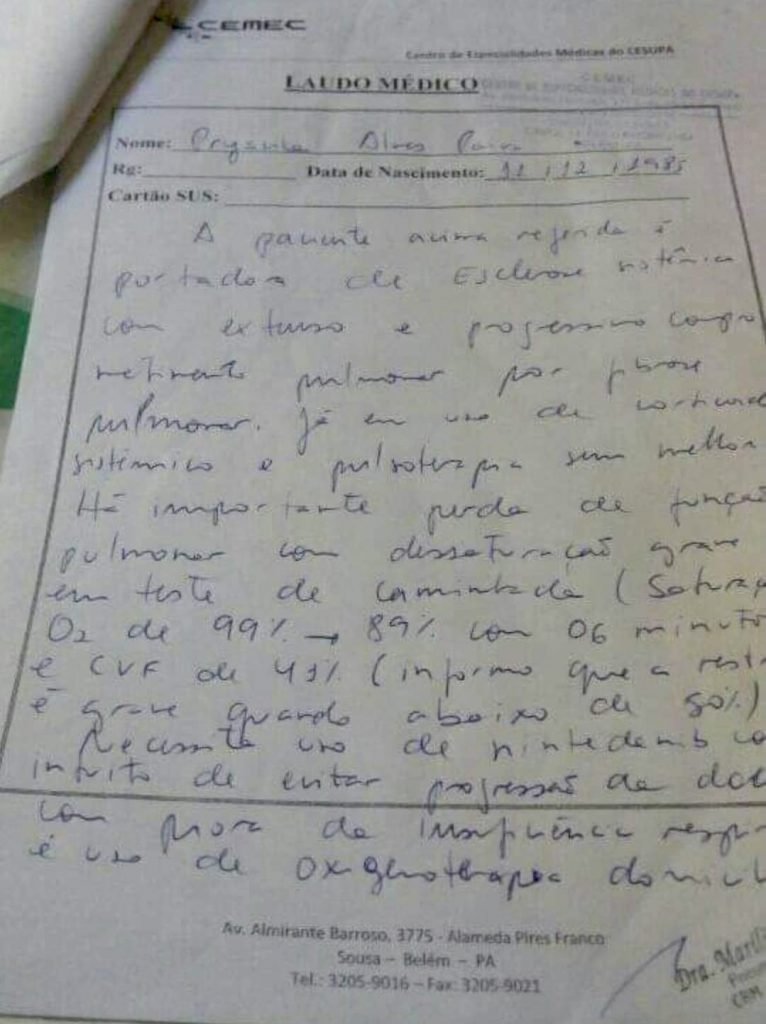 CEMEC
Centro de Especialidades Médicas do CESUPA
LAUDO MÉDICO
Nome: Alves
Rg: Data de Nascimento: 11 / 12 / 1985
Cartão SUS:
A paciente acima referida é
portadora de Esclerose sistêmica
com extenso e progressivo compro
metimento pulmonar por fibrose
pulmonar. Já em uso de corticoide
sistêmico e pulsoterapia sem melhor
Há importante perda de função
pulmonar com dessaturação grave
em teste de caminhada (Saturaç
O2 de 99% → 89% com 06 minuto
e CVF de 41% (informo que a rest
é grave quando abaixo de 50%)
Necessita uso de nintedanib co
intuito de evitar progressão da doe
com piora da insuficiência resp
e uso de oxigenoterapia domicil
Av. Almirante Barroso, 3775 - Alameda Pires Franco
Sousa – Belém – PA
Tel.: 3205-9016 – Fax: 3205-9021
Dra. Maríl
CRM